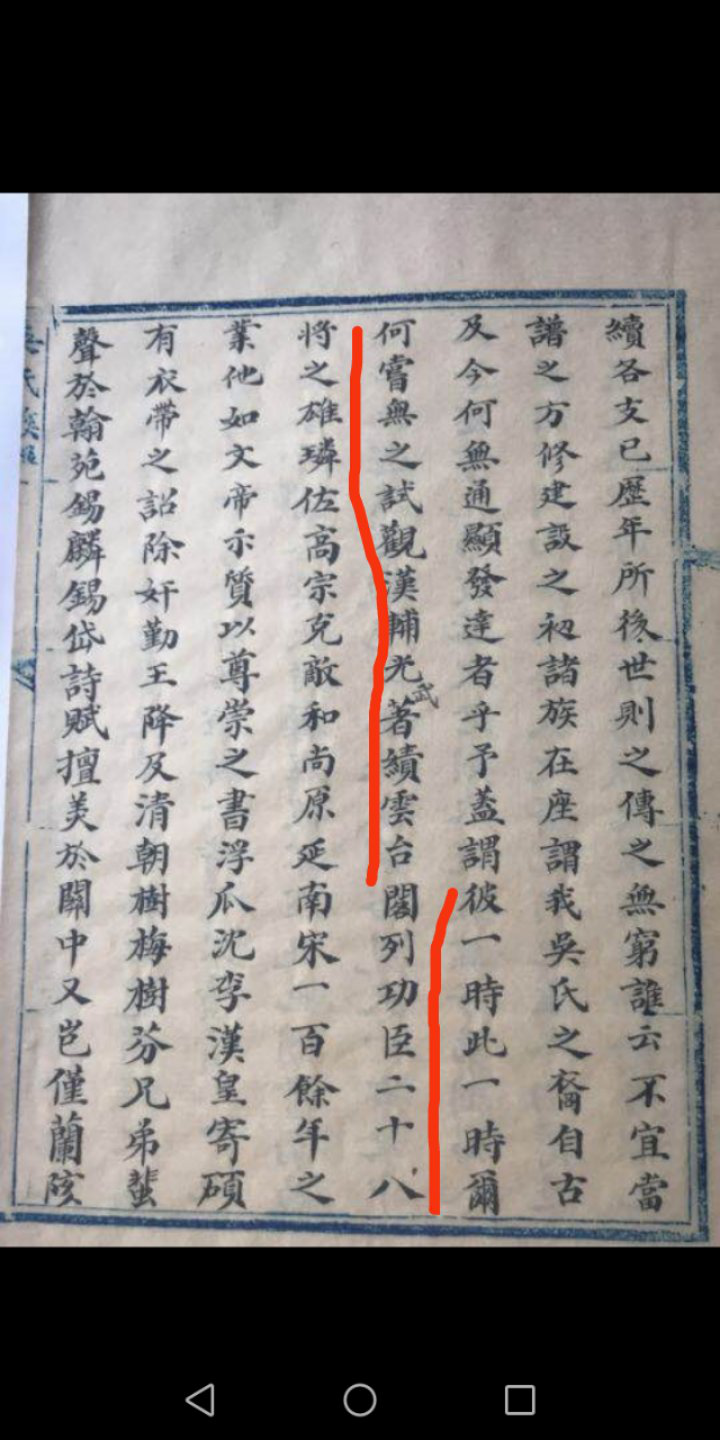 續各支已歷年所後世則之傳之無窮誰云不宜當
譜之方修建設之初諸族在座謂我吳氏之裔自古
及今何無通顯發達者乎予蓋謂彼一時此一時爾
何嘗無之試觀漢輔光武著績雲台閣列功臣二十八
將之雄璘佐高宗克敵和尚原延南宋一百餘年之
業他如文帝示質以尊崇之書浮瓜沈李漢皇寄碩
有衣帶之詔除奸勤王降及清朝樹梅樹芬兄弟蜚
聲於翰苑錫麟錫岱詩賦擅美於關中又豈僅蘭陔
吳氏族譜